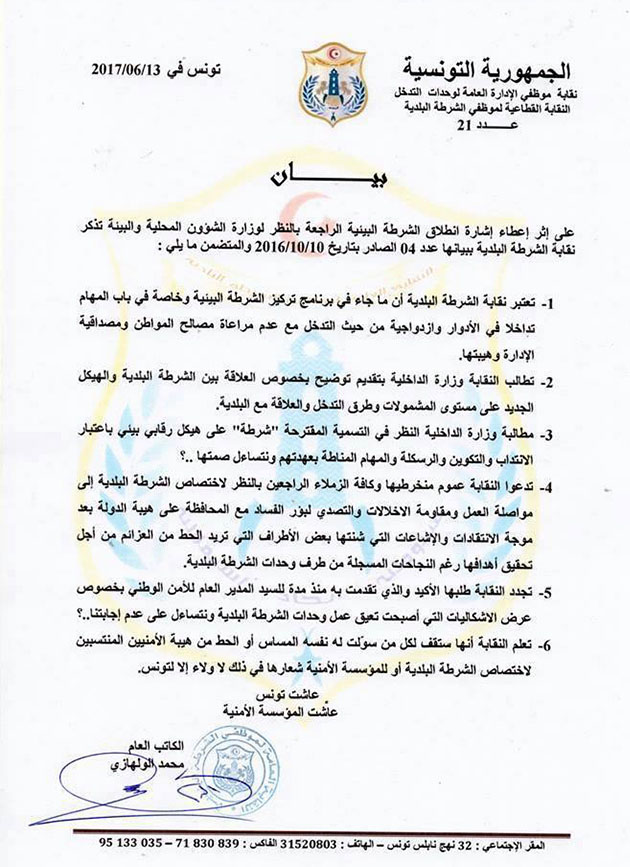 الجمهورية التونسية
نقابة موظفي الإدارة العامة لوحدات التدخل
النقابة القطاعية لموظفي الشرطة البلدية
عـــدد 21
تونس في 2017/06/13
بيـــــان
على إثر إعطاء إشارة انطلاق الشرطة البيئية الراجعة بالنظر لوزارة الشؤون المحلية والبيئة تذكر
نقابة الشرطة البلدية ببيانها عدد 04 الصادر بتاريخ 2016/10/10 والمتضمن ما يلي :
1- تعتبر نقابة الشرطة البلدية أن ما جاء في برنامج تركيز الشرطة البيئية وخاصة في باب المهام
تداخلا في الأدوار وازدواجية من حيث التدخل مع عدم مراعاة مصالح المواطن ومصداقية
الإدارة وهيبتها.
2- تطالب النقابة وزارة الداخلية بتقديم توضيح بخصوص العلاقة بين الشرطة البلدية والهيكل
الجديد على مستوى المشمولات وطرق التدخل والعلاقة مع البلدية.
3- مطالبة وزارة الداخلية النظر في التسمية المقترحة "شرطة" على هيكل رقابي بيئي باعتبار
الانتداب والتكوين والرسكلة والمهام المناطة بعهدتهم ونتساءل صمتها ..؟
4- تدعوا النقابة عموم منخرطيها وكافة الزملاء الراجعين بالنظر لاختصاص الشرطة البلدية إلى
مواصلة العمل ومقاومة الاخلالات والتصدي لبؤر الفساد مع المحافظة على هيبة الدولة بعد
موجة الانتقادات والإشاعات التي شنتها بعض الأطراف التي تريد الحط من العزائم من أجل
تحقيق أهدافها رغم النجاحات المسجلة من طرف وحدات الشرطة البلدية.
5- تجدد النقابة طلبها الأكيد والذي تقدمت به منذ مدة للسيد المدير العام للأمن الوطني بخصوص
عرض الاشكاليات التي أصبحت تعيق عمل وحدات الشرطة البلدية ونتساءل على عدم إجابتنا..؟
6- تعلم النقابة أنها ستقف لكل من سوّلت له نفسه المساس أو الحط من هيبة الأمنيين المنتسبين
لاختصاص الشرطة البلدية أو للمؤسسة الأمنية شعارها في ذلك لا ولاء إلا لتونس.
عاشت تونس
عاشت المؤسسة الأمنية
الكاتب العام
محمد الولهازي
المقر الإجتماعي : 32 نهج نابلس تونس – الهاتف : 31520803 الفاكس : 71 830 839 – 95 133 035